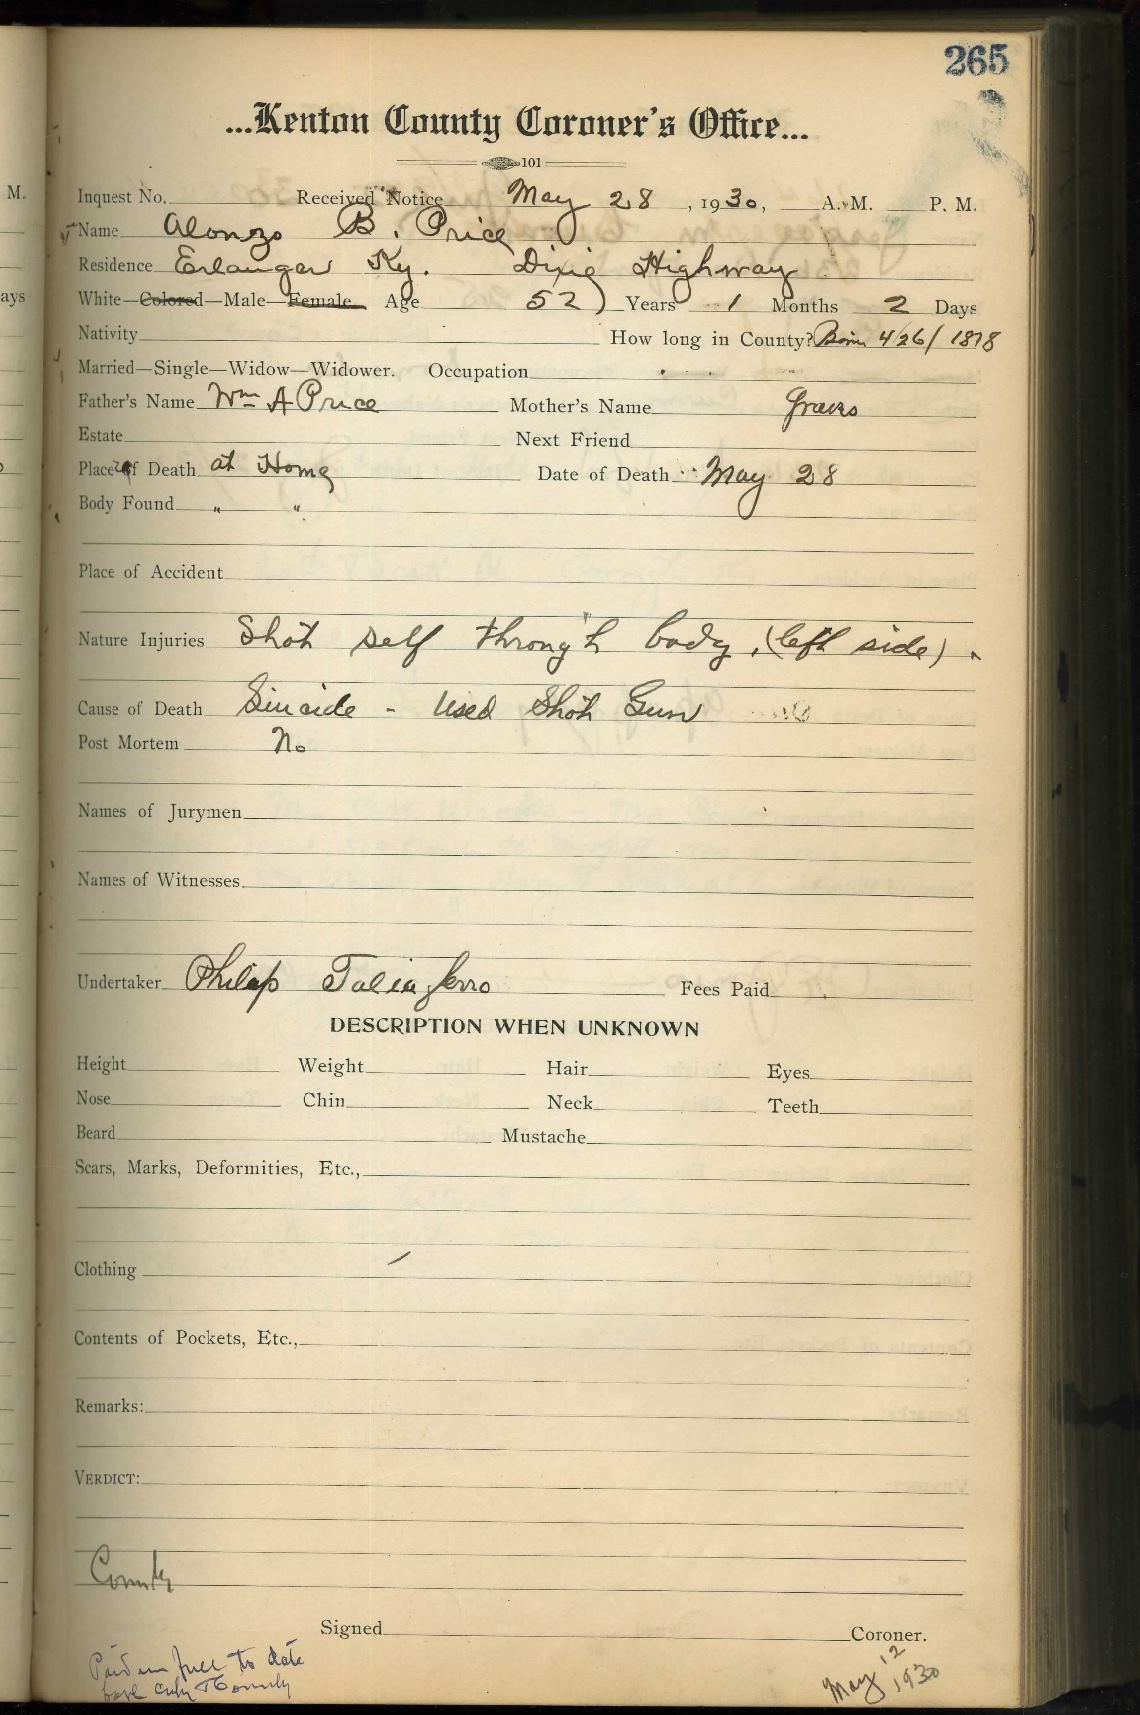 265
...Kenton County Coroner's Office...
101
M.
Inquest No. Received Notice May 28, 1930, A. M. P. M.
Name Alonzo B. Price
Residence Erlanger Ky. Dixie Highway
ays
White—Colored—Male—Female Age 52) Years 1 Months 2 Days
Nativity How long in County? Born 4/26/1878
Married—Single—Widow—Widower. Occupation
Father's Name Wm A Price Mother's Name Graves
Estate Next Friend
Place of Death at Home Date of Death May 28
Body Found " "
Place of Accident
Nature Injuries Shot self through body, (left side).
Cause of Death Suicide - Used Shot Gun
Post Mortem No
Names of Jurymen
Names of Witnesses
Undertaker Philip Taliaferro Fees Paid
DESCRIPTION WHEN UNKNOWN
Height Weight Hair Eyes
Nose Chin Neck Teeth
Beard Mustache
Scars, Marks, Deformities, Etc.,
Clothing
Contents of Pockets, Etc.,
Remarks:
VERDICT:
County
Signed Coroner.
Paid in full to date
County
May 12
1930